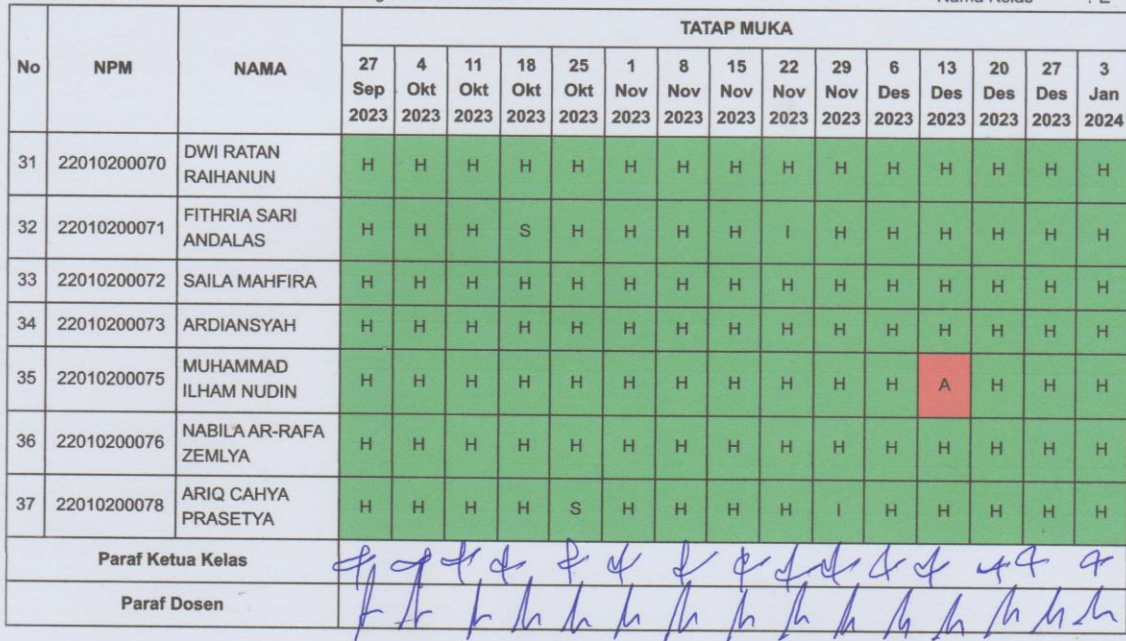 Nama Kelas : E
TATAP MUKA
No NPM NAMA 27 Sep 2023 4 Okt 2023 11 Okt 2023 18 Okt 2023 25 Okt 2023 1 Nov 2023 8 Nov 2023 15 Nov 2023 22 Nov 2023 29 Nov 2023 6 Des 2023 13 Des 2023 20 Des 2023 27 Des 2023 3 Jan 2024
31 22010200070 DWI RATAN RAIHANUN H H H H H H H H H H H H H H H
32 22010200071 FITHRIA SARI ANDALAS H H H S H H H H I H H H H H H
33 22010200072 SAILA MAHFIRA H H H H H H H H H H H H H H H
34 22010200073 ARDIANSYAH H H H H H H H H H H H H H H H
35 22010200075 MUHAMMAD ILHAM NUDIN H H H H H H H H H H H A H H H
36 22010200076 NABILA AR-RAFA ZEMLYA H H H H H H H H H H H H H H H
37 22010200078 ARIQ CAHYA PRASETYA H H H H S H H H H I H H H H H
Paraf Ketua Kelas
Paraf Dosen